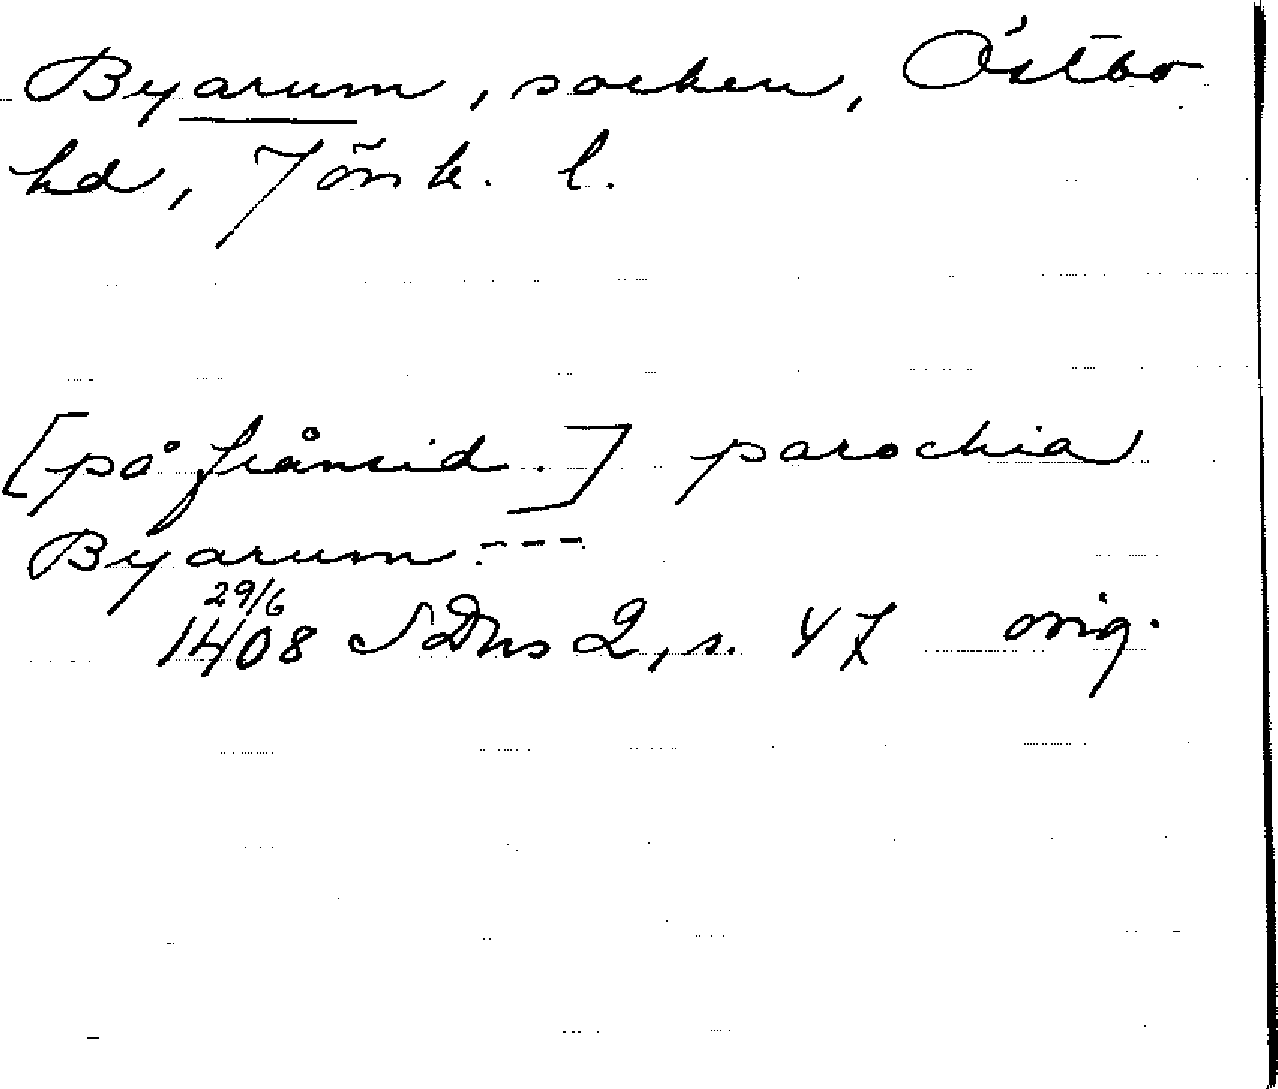 Byarum, socken, Östbo
hd, Jönk. l.
[på frånsid.] parochia
Byarum ---
29/6
1408 SDns 2, s. 47 orig.